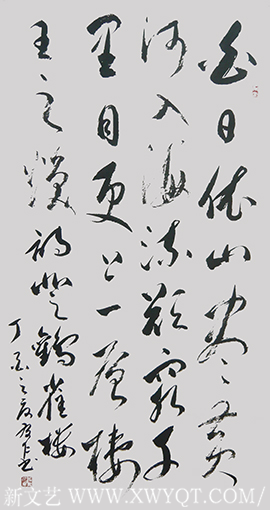 白日依山尽黄
河入海流欲穷千
里目更上一层楼
王之涣诗登鹳雀楼
丁酉之
新文艺 / WWW.XWYQT.COM/